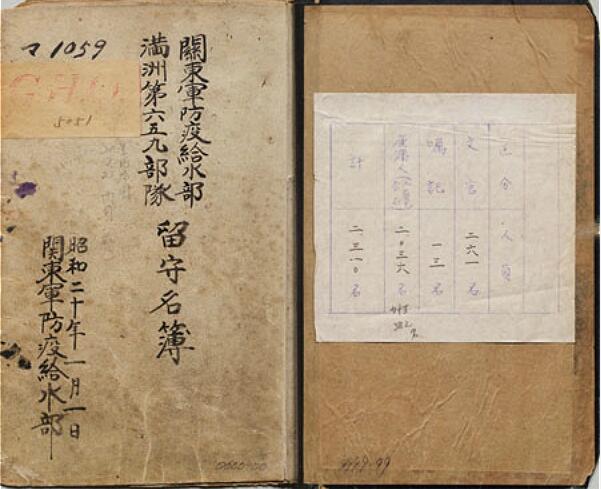 マ 1059
G.H.Q.
5051
關東軍防疫給水部
満洲第六五九部隊
留守名簿
昭和二十年一月一日
関東軍防疫給水部
区分 人員
文官 二六一名
嘱託 一三名
二.〇三六名
計 二.三一〇名